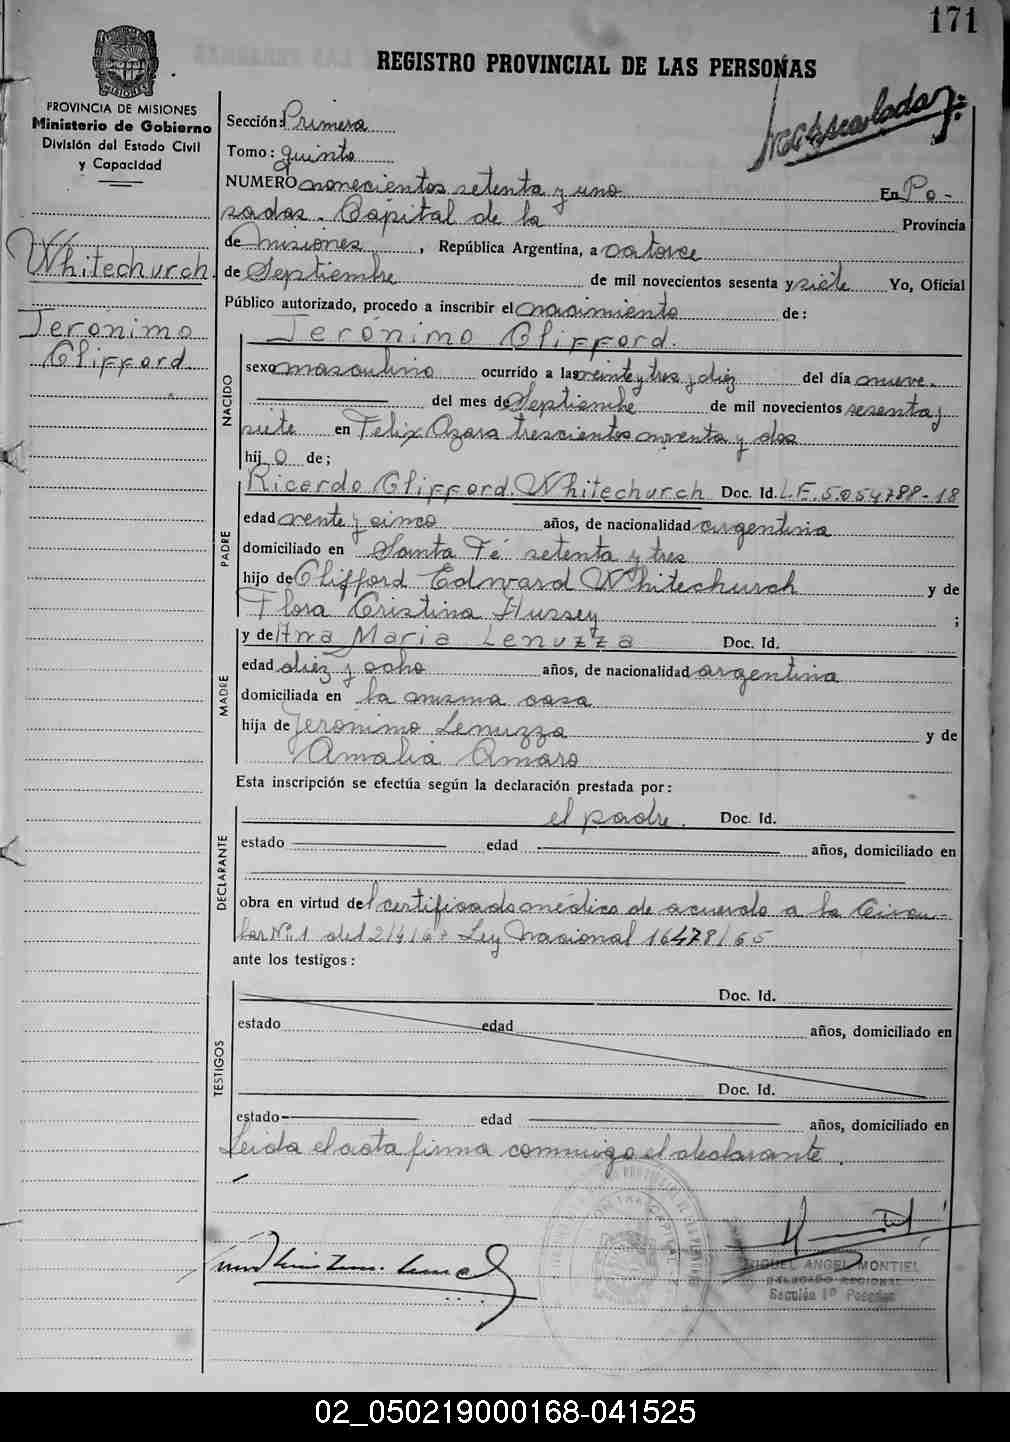 171
REGISTRO PROVINCIAL DE LAS PERSONAS
PROVINCIA DE MISIONES
Ministerio de Gobierno
División del Estado Civil
y Capacidad
Sección: Primera
Tomo: quinto
NUMERO novecientos setenta y uno En Po-
sadas. Capital de la Provincia
de Misiones, República Argentina, a catorce
de Septiembre de mil novecientos sesenta y siete Yo, Oficial
Público autorizado, procedo a inscribir el nacimiento de:
Whitechurch
Jerónimo
Clifford.
Jerónimo Clifford.
NACIDO
sexo masculino ocurrido a las veinte y tres y diez del día nueve.
del mes de Septiembre de mil novecientos sesenta y
siete en Felix Azara trescientos noventa y dos
hijo de;
PADRE
Ricardo Clifford Whitechurch Doc. Id. L.E. 5.054788-18
edad vente y cinco años, de nacionalidad argentina
domiciliado en Santa Fé setenta y tres
hijo de Clifford Edward Whitechurch y de
Flora Cristina Hussey ;
MADRE
y de Ana Maria Lenuzza Doc. Id.
edad diez y ocho años, de nacionalidad argentina
domiciliada en la misma casa
hija de Jeronimo Lenuzza y de
Amalia Amaro
Esta inscripción se efectúa según la declaración prestada por:
DECLARANTE
el padre. Doc. Id.
estado edad años, domiciliado en
obra en virtud del certificado médico de acuerdo a la Circu-
lar Nº 1 del 2/4/67 Ley Nacional 16478/65
ante los testigos:
TESTIGOS
Doc. Id.
estado edad años, domiciliado en
Doc. Id.
estado edad años, domiciliado en
Leida el acta firma conmigo el declarante.
MIGUEL ANGEL MONTIEL
DELEGADO REGIONAL
Sección 1º Posadas
02_050219000168-041525